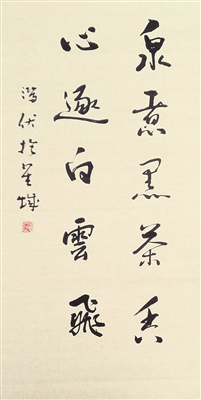 泉煮黑茶香
心逐白雲飛
伏於星城